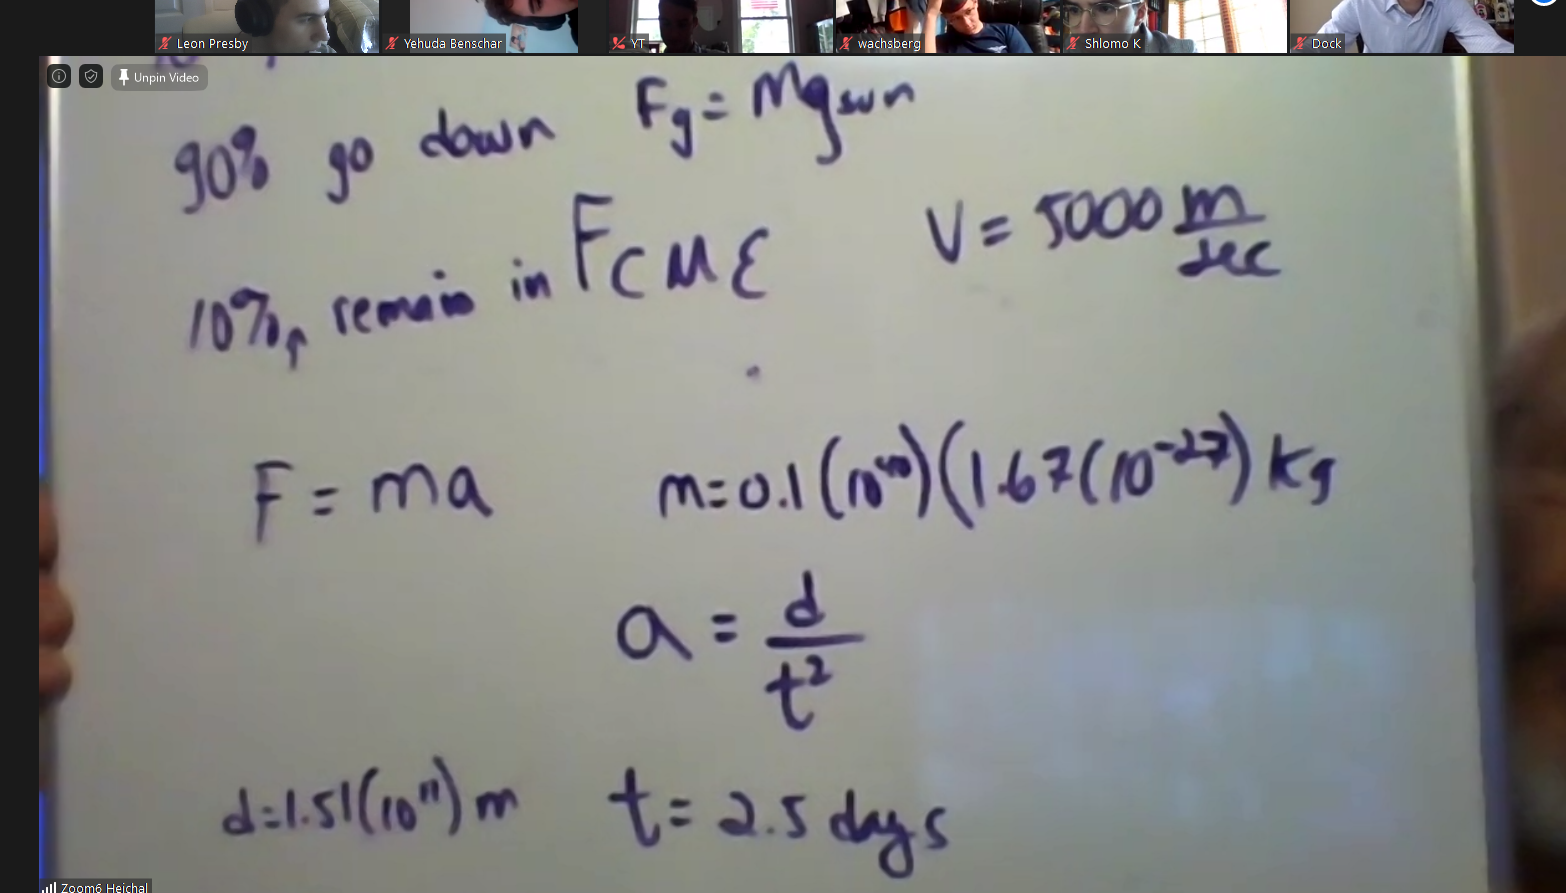 Leon Presby
Yehuda Benschar
YT
wachsberg
Shlomo K
Dock
Unpin Video
90% go down Fg = Mgsun
10% remain in FCME V = 5000 m/sec
F = ma m = 0.1 (10⁴⁰)(1.67(10⁻²⁷) Kg
a = d/t²
d=1.51(10¹¹) m t = 2.5 days
Zoom6 Heichal